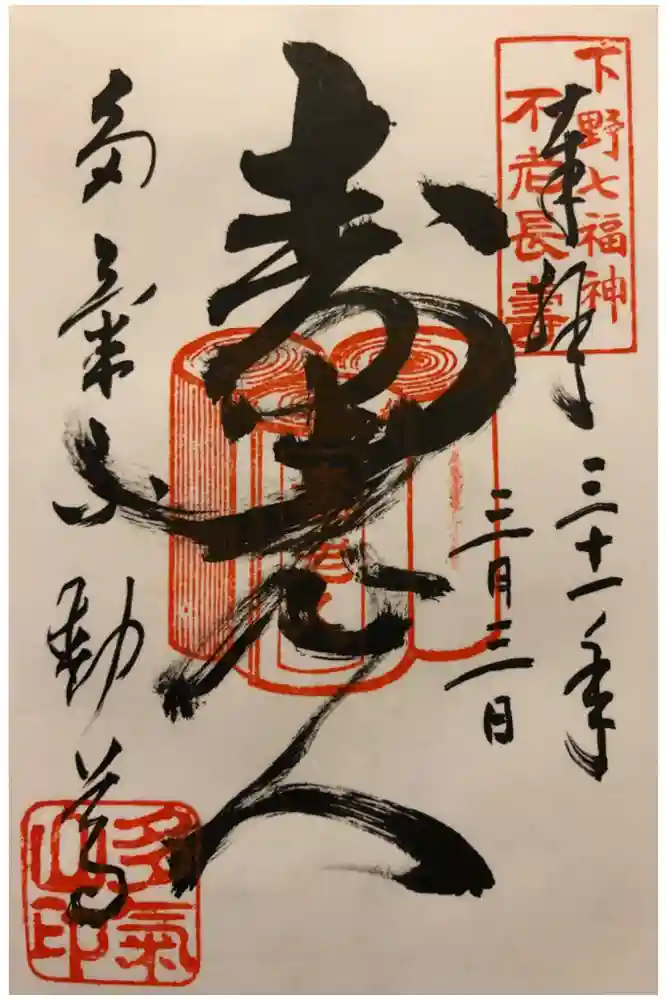 下野七福神
不老長壽
奉拝
三十一年
三月三日
寿老人
多氣山
不動尊
多氣
山印